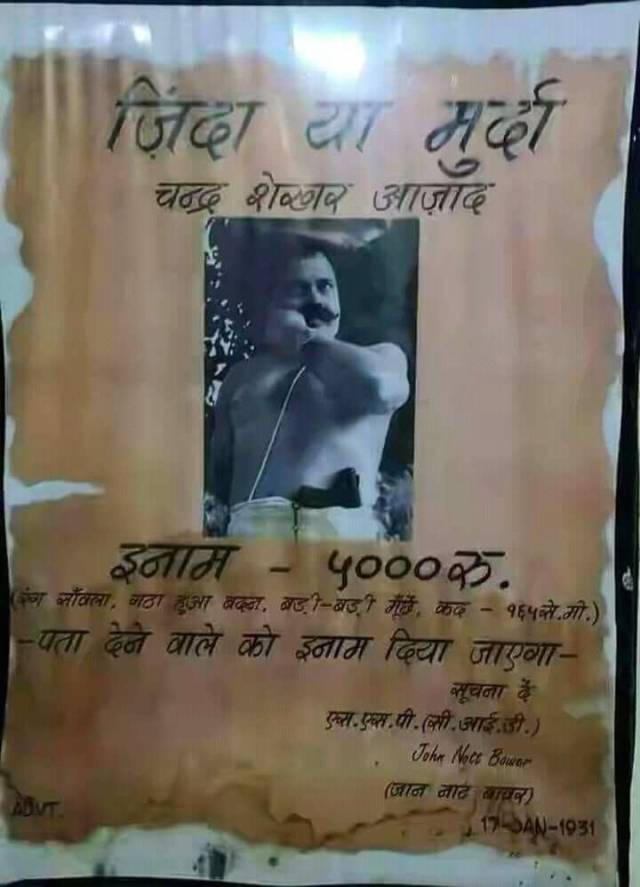 ज़िंदा या मुर्दा
चन्द्र शेखर आज़ाद
इनाम - ५००० रु.
(रंग साँवला, गठा हुआ बदन, बड़ी-बड़ी मूँछें, कद - १६५ से.मी.)
-पता देने वाले को इनाम दिया जाएगा-
सूचना दें
एस.एस.पी.(सी.आई.डी.)
John Nott Bower
(जान नाट बावर)
ADVT.
17-JAN-1931